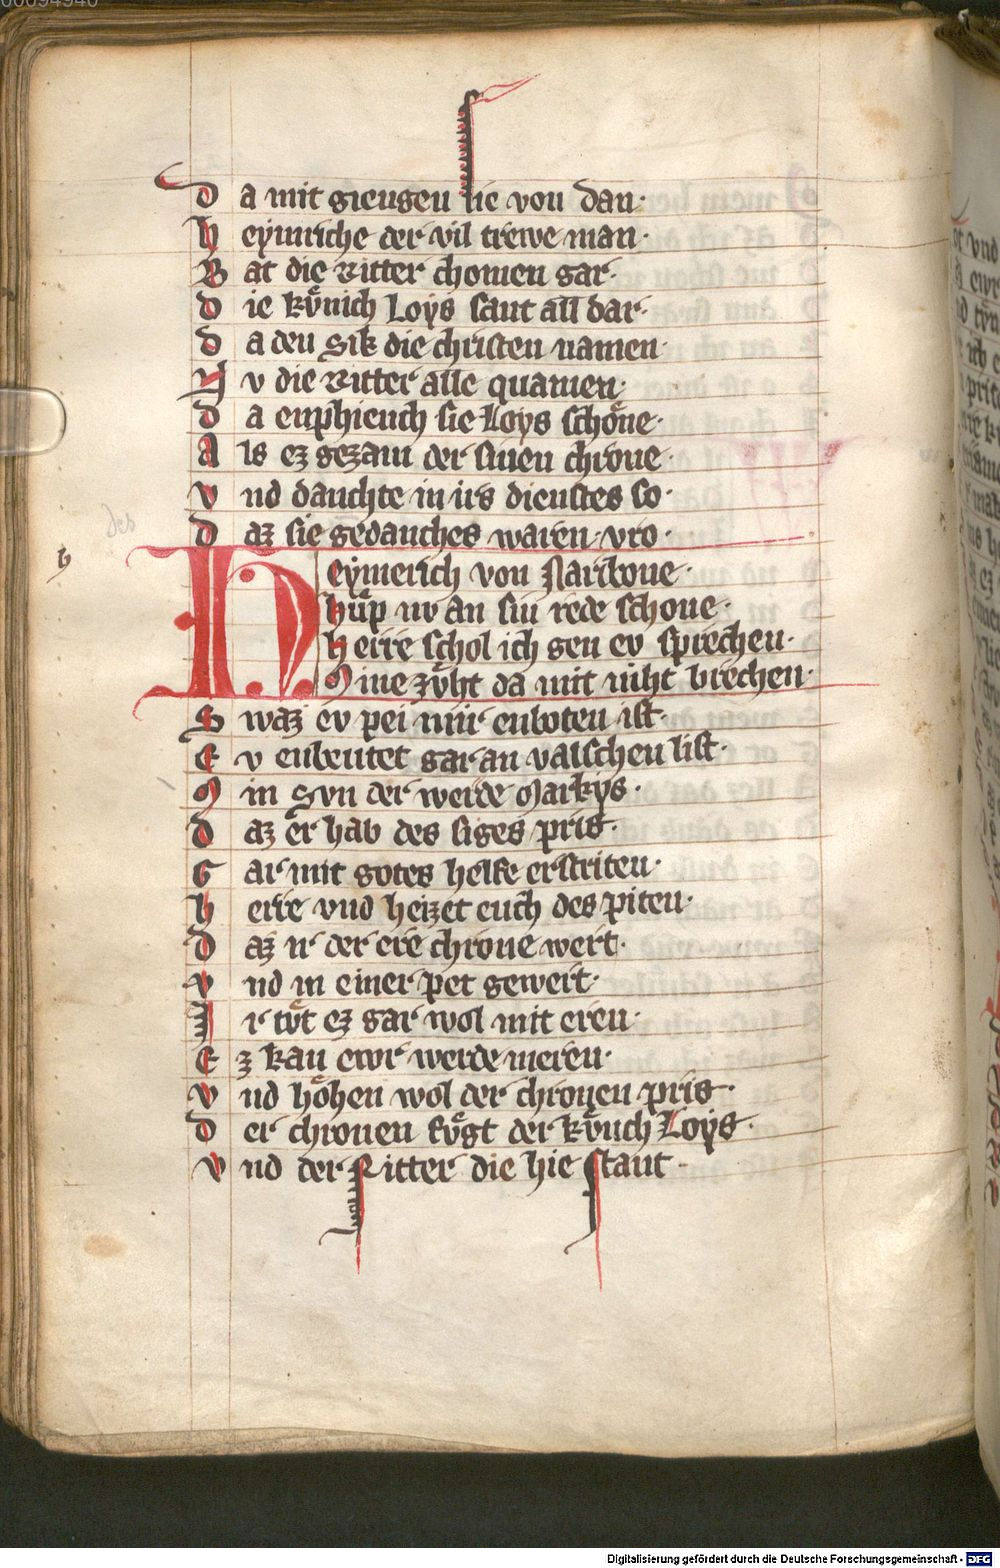 00094940
Da mit giengen sie von dan·
Heymriche der vil trewe man·
Bat die Ritter chomen gar·
Die kv̊nich Loys sant all dar·
Da den sik die christen namen·
Nv die Ritter alle quamen·
Da enphiench sie Loys schone·
Als ez gezam der sinen chrone·
Vnd dauchte in irs dienstes so·
Daz sie gedanches waren vro·
des
h
Heymerich von Naribone·
Hůp nv an sin rede schone·
Herre schol ich gen ev sprechen·
Mine zv̊ht da mit niht brechen·
Swaz ev pei mir enboten ist·
Ev enbeutet gar an valschen list·
Min Svn der werde Markys·
Daz er hab des siges pris·
Gar mit gotes helfe erstriten·
Herre vnd heizet euch des piten·
Daz ir der ere chrone wert·
Vnd in einer pet gewert·
Ir tv̊t ez gar wol mit eren·
Ez kan ewr werde meren·
Vnd hőhen wol der chronen pris·
Der chronen fv̊gt der kv̊nich Loys·
Vnd der Ritter die hie stant·
Digitalisierung gefördert durch die Deutsche Forschungsgemeinschaft - DFG